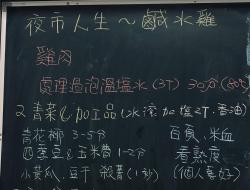 夜市人生～鹹水雞
雞肉
處理過泡溫塩水(3T) 30分(80℃)
2. 青菜&加工品(水滾加塩2T.香油)
青花椰 3-5分 百頁、米血
四季豆&玉米筍1-2分 看熟度
小黃瓜、豆干 殺菁(1秒) (個人喜好)